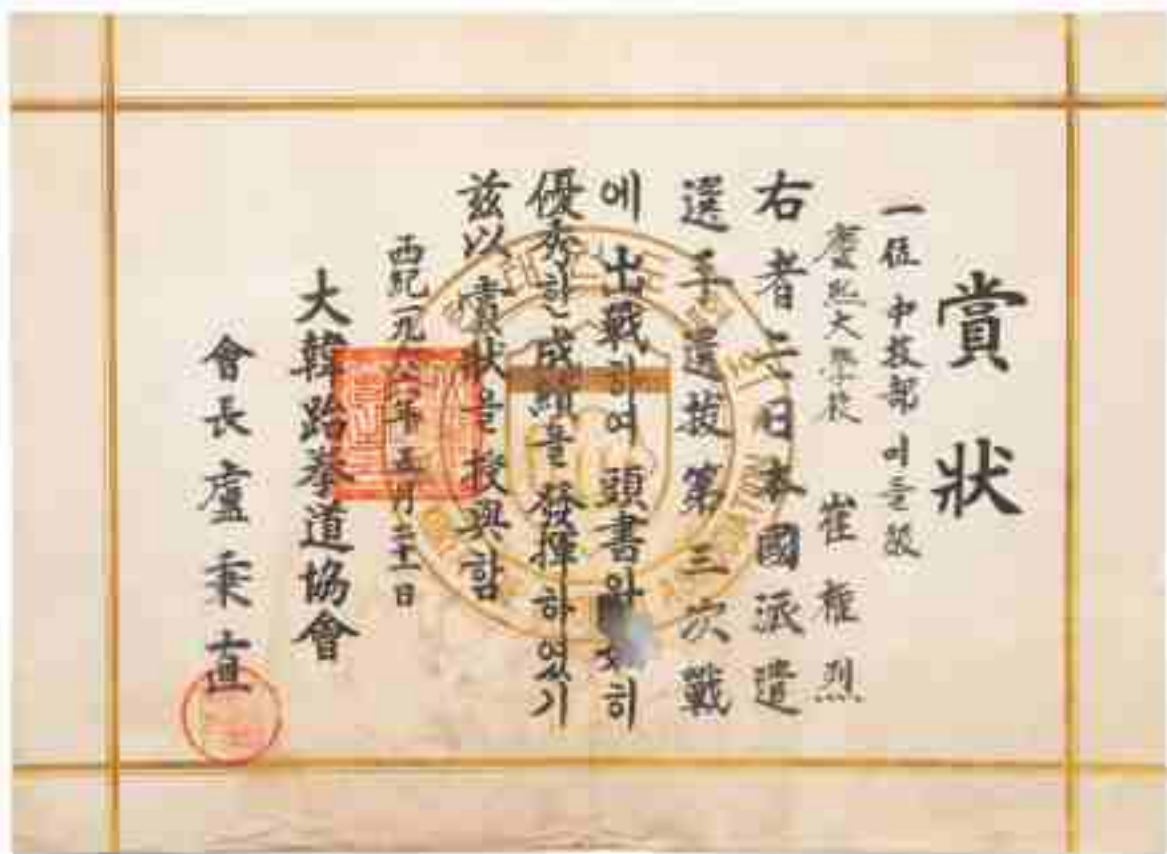 賞狀
一位 中技部 미들級
慶熙大學校 崔權烈
右者는日本國派遣
選手選拔第三次戰
에 出戰하여 頭書와 히
優秀한 成績을 發揮하였기
玆以 賞狀을 授與함
西紀 五月
大韓跆拳道協會
會長盧秉直